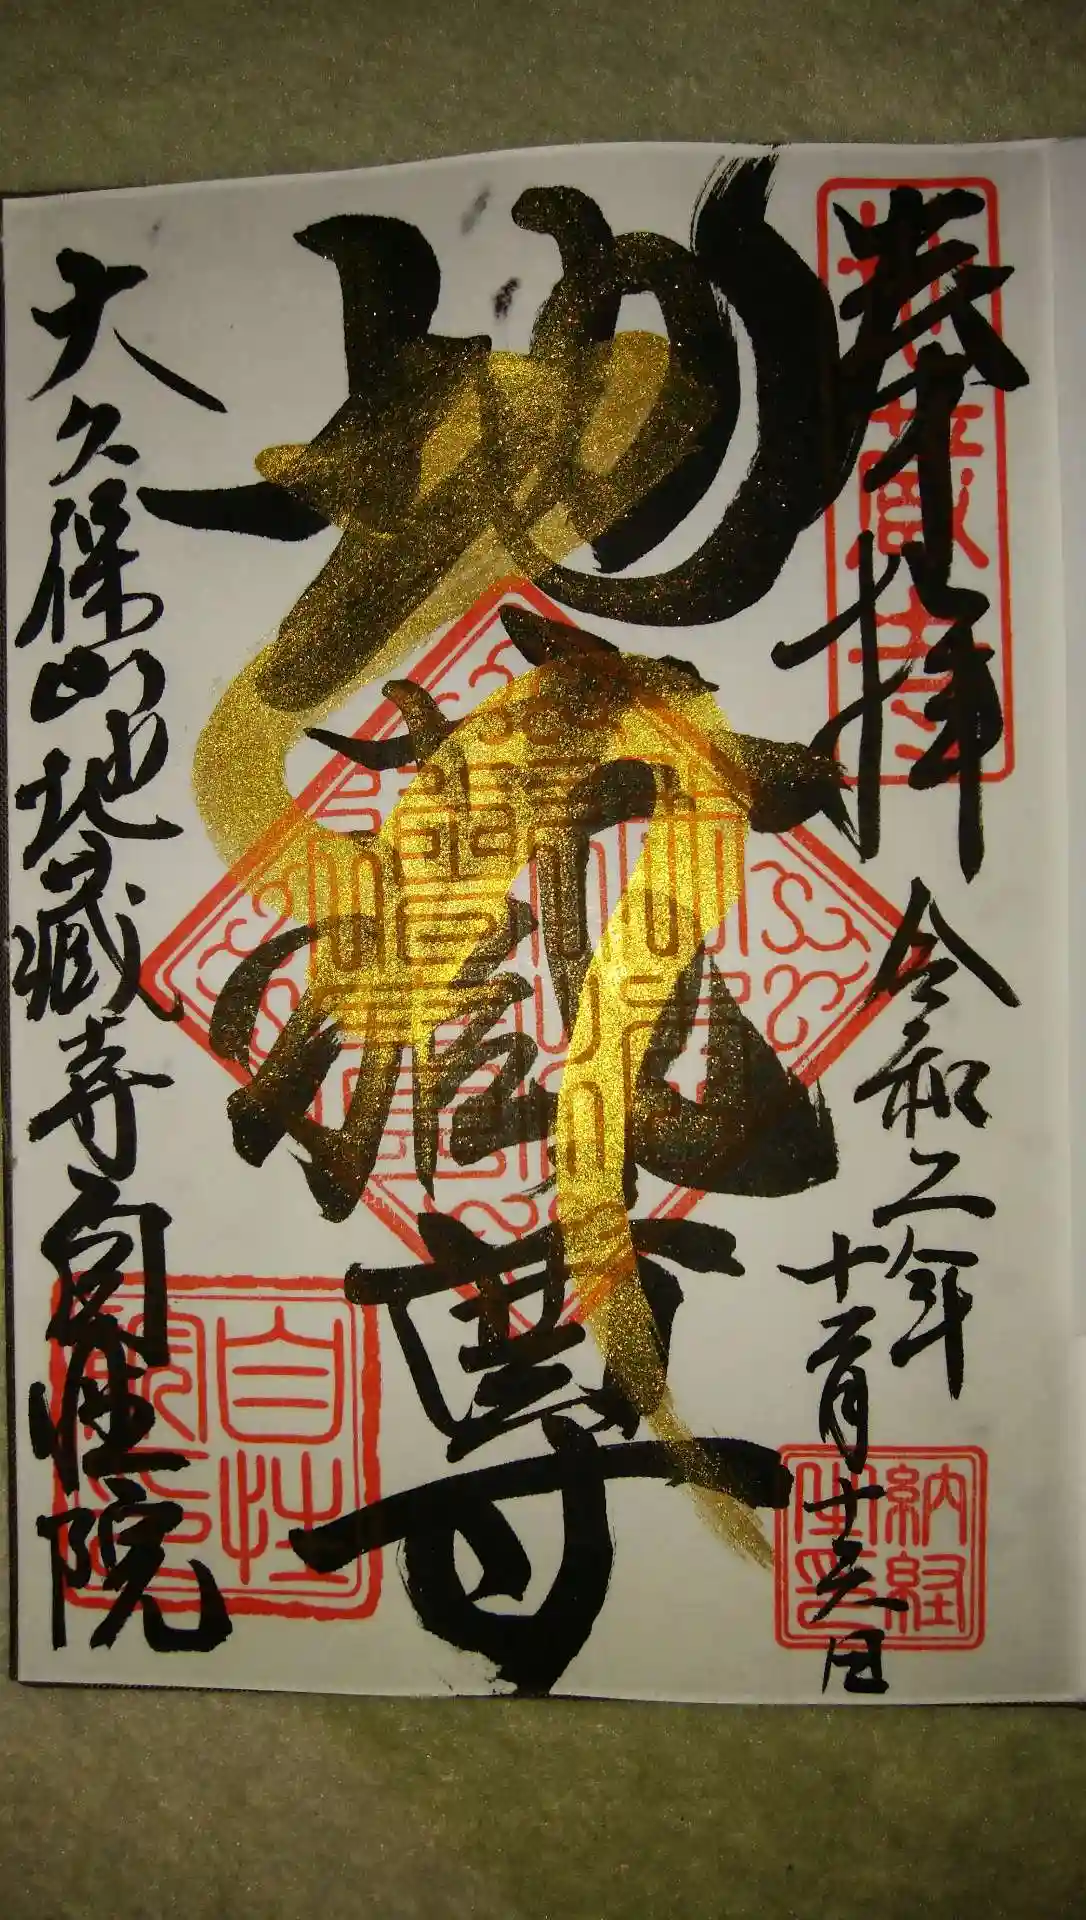 奉拝
令和二年
十二月十六日
地蔵尊
大久保山地蔵寺自性院
地蔵寺
納経
自性